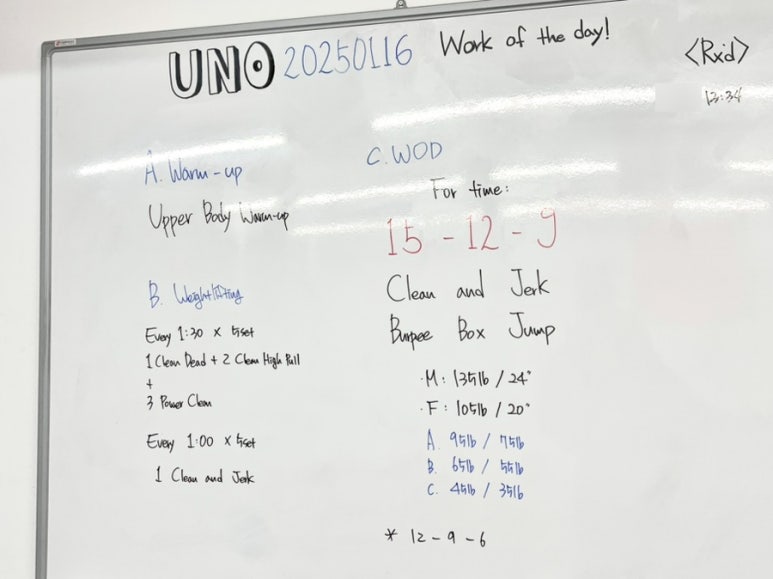 UNO 20250116 Work of the day!
<Rx'd>
13:34
A. Warm-up
Upper Body Warm-up
B. Weightlifting
Every 1:30 × 5set
1 Clean Dead + 2 Clean High Pull
+
3 Power Clean
Every 1:00 × 5set
1 Clean and Jerk
C. WOD
For time:
15 - 12 - 9
Clean and Jerk
Burpee Box Jump
·M: 135lb / 24"
·F: 105lb / 20"
A. 95lb / 75lb
B. 65lb / 55lb
C. 45lb / 35lb
* 12 - 9 - 6